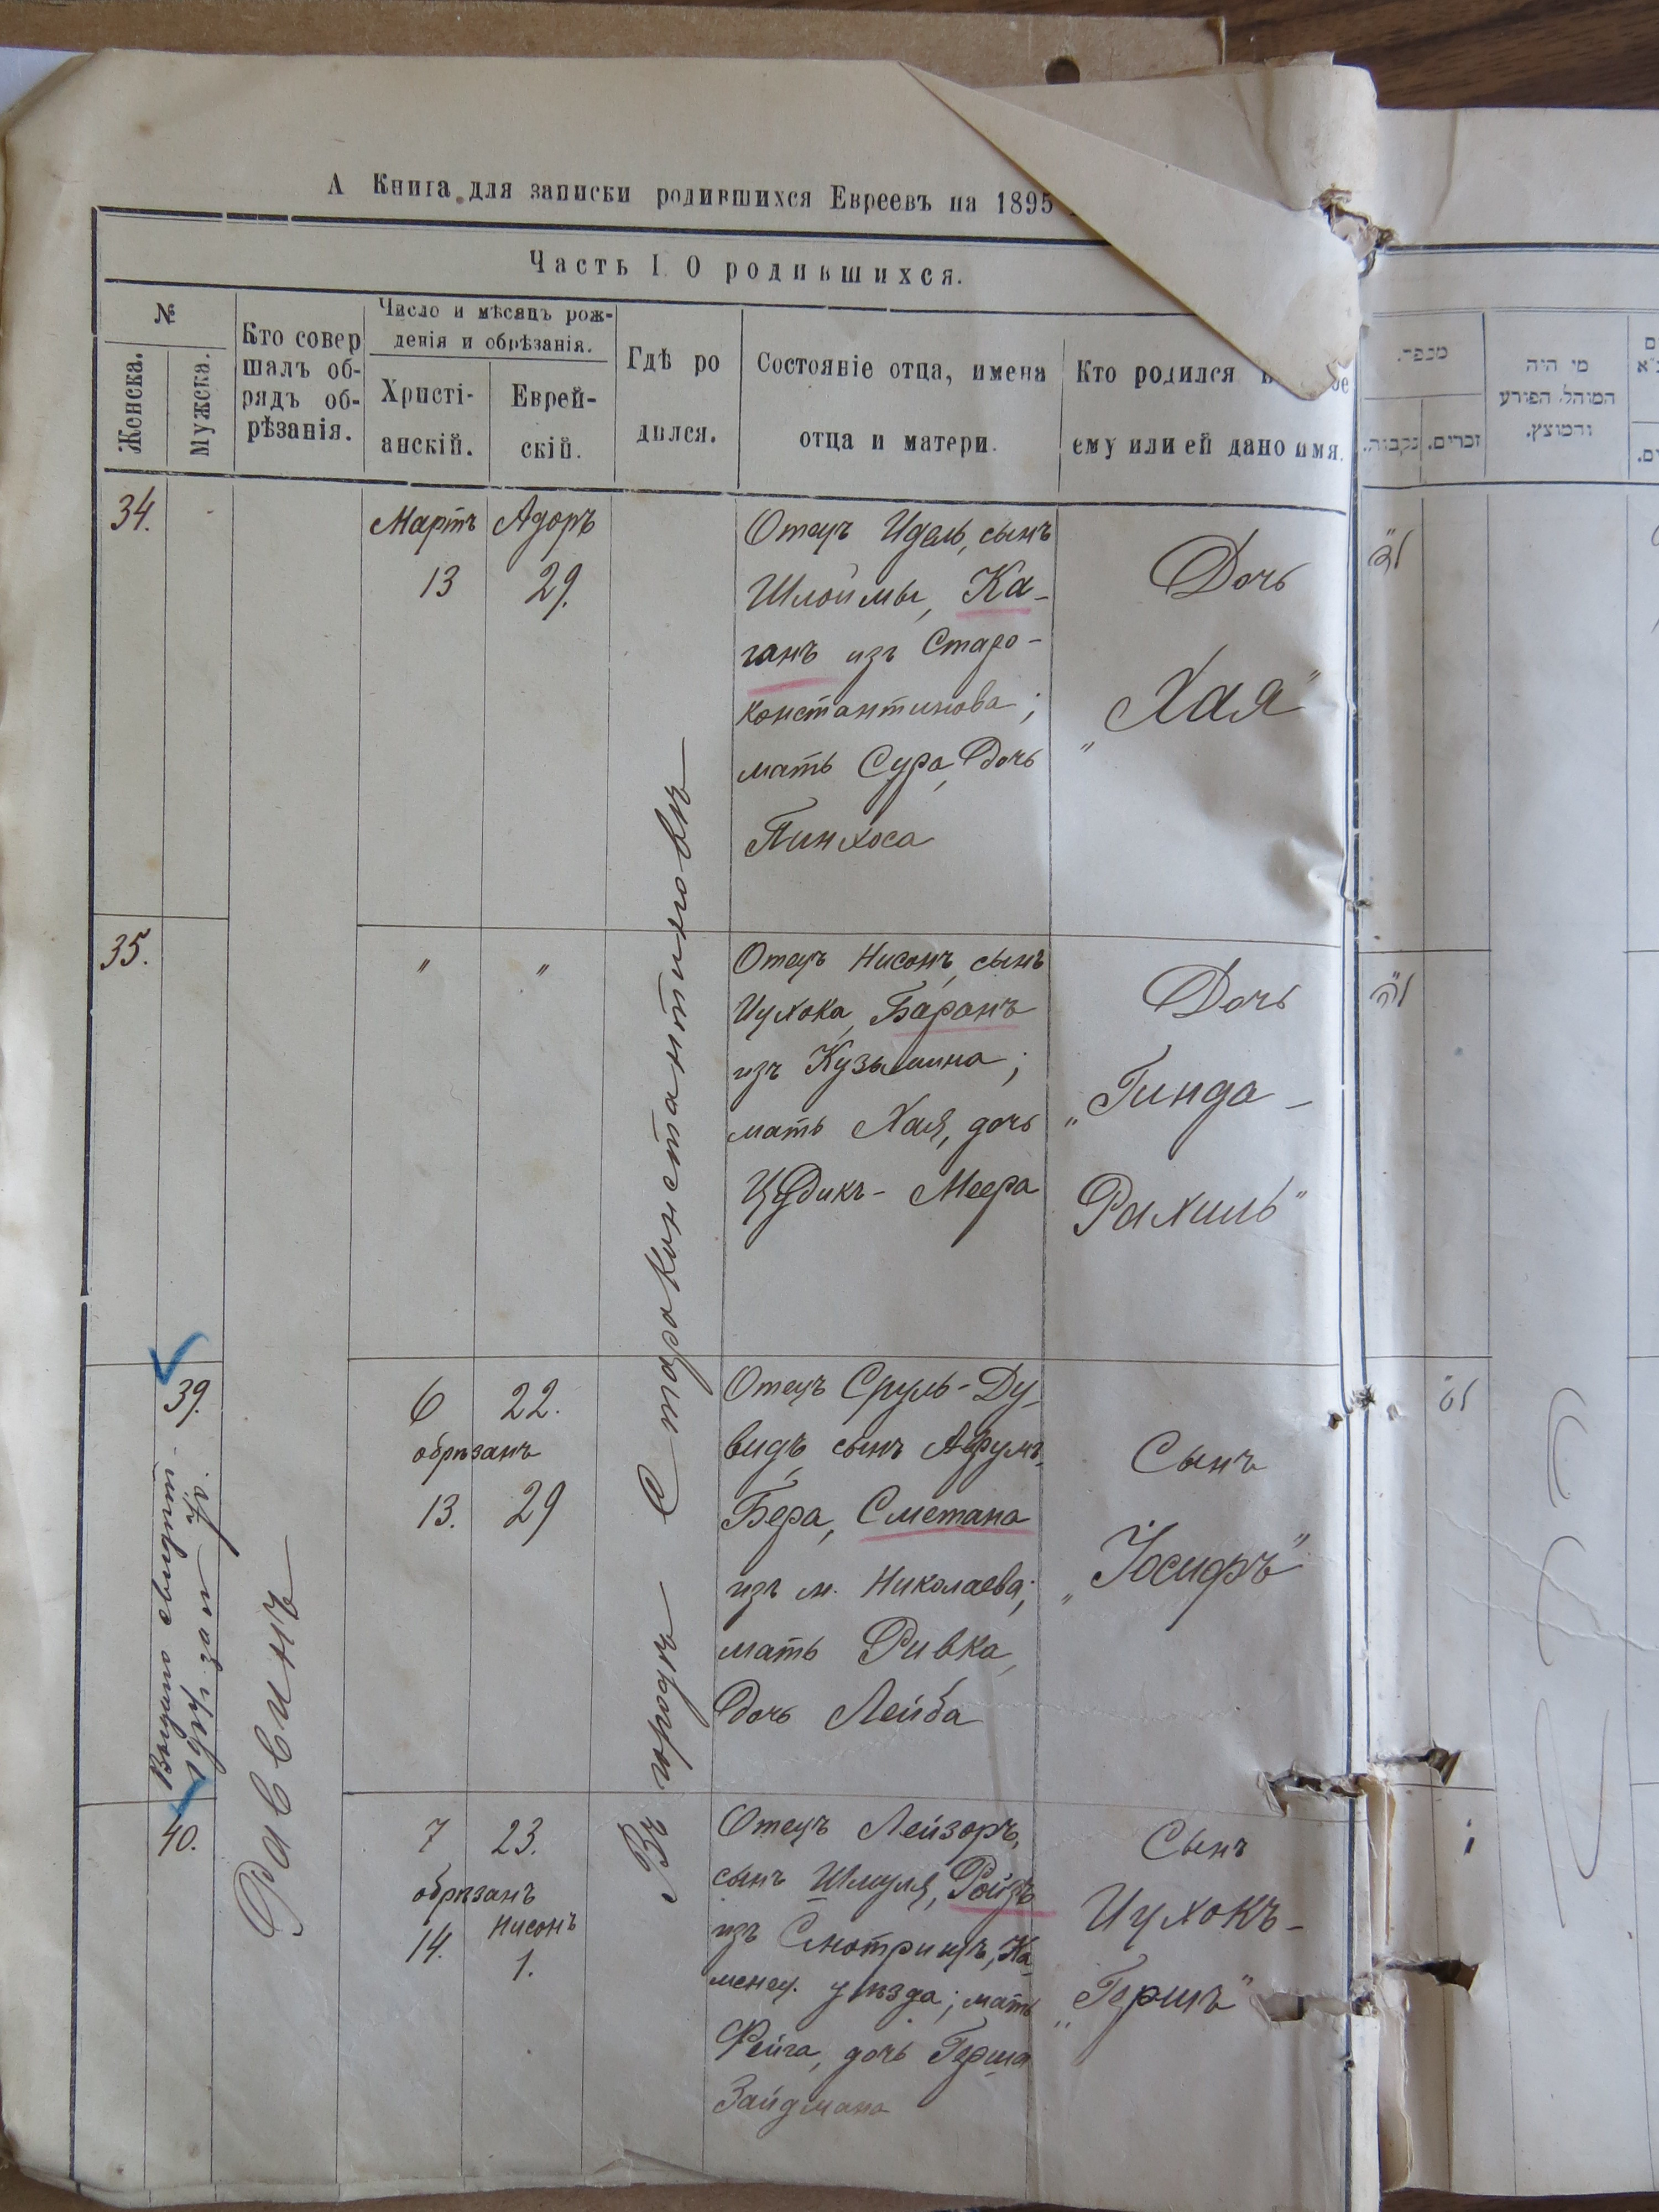 А Книга для записки родившихся Евреевъ на 1895
Часть I. О родившихся.
№
Женска.
Мужска.
Кто совер
шалъ об-
рядъ об-
рѣзанія.
Число и мѣсяцъ рож-
денія и обрѣзанія.
Христі-
анскій.
Еврей-
скій.
Гдѣ ро
дился.
Состояніе отца, имена
отца и матери.
Кто родился
ему или ей дано имя.
34.
Мартъ
13
Адоръ
29.
Отецъ Идель, сынъ
Шлоймы, Ка-
ганъ изъ Старо-
константинова;
мать Сура, Дочь
Пинхоса
Дочь
„Хая"
35.
"
"
Отецъ Нисонъ, сынъ
Ицхока, Баранъ
изъ Кузьмина;
мать Хая, дочь
Цудикъ-Меера
Дочь
„Гинда-
Рахиль"
39.
6
22.
обрѣзанъ
13.
29
Отецъ Сруль-Ду-
видъ, сынъ Афумъ-
Бера, Сметана
изъ м. Николаева;
мать Ривка,
Дочь Лейба
Сынъ
„Іосифъ"
40.
7
23.
обрѣзанъ
14.
Нисонъ
1.
Отецъ Лейзоръ,
сынъ Шмуля, Ройзъ
изъ Смотричъ, Ка-
менец. уѣзда; мать
Фейга, дочь Герша
Зайдмана
Сынъ
Ицхокъ-
„Гершъ"
Раввинъ
Въ городѣ Староконстантиновѣ
מספר.
נקבות.
זכרים.
מי היה
המוהל, הפורע
והמוצץ.